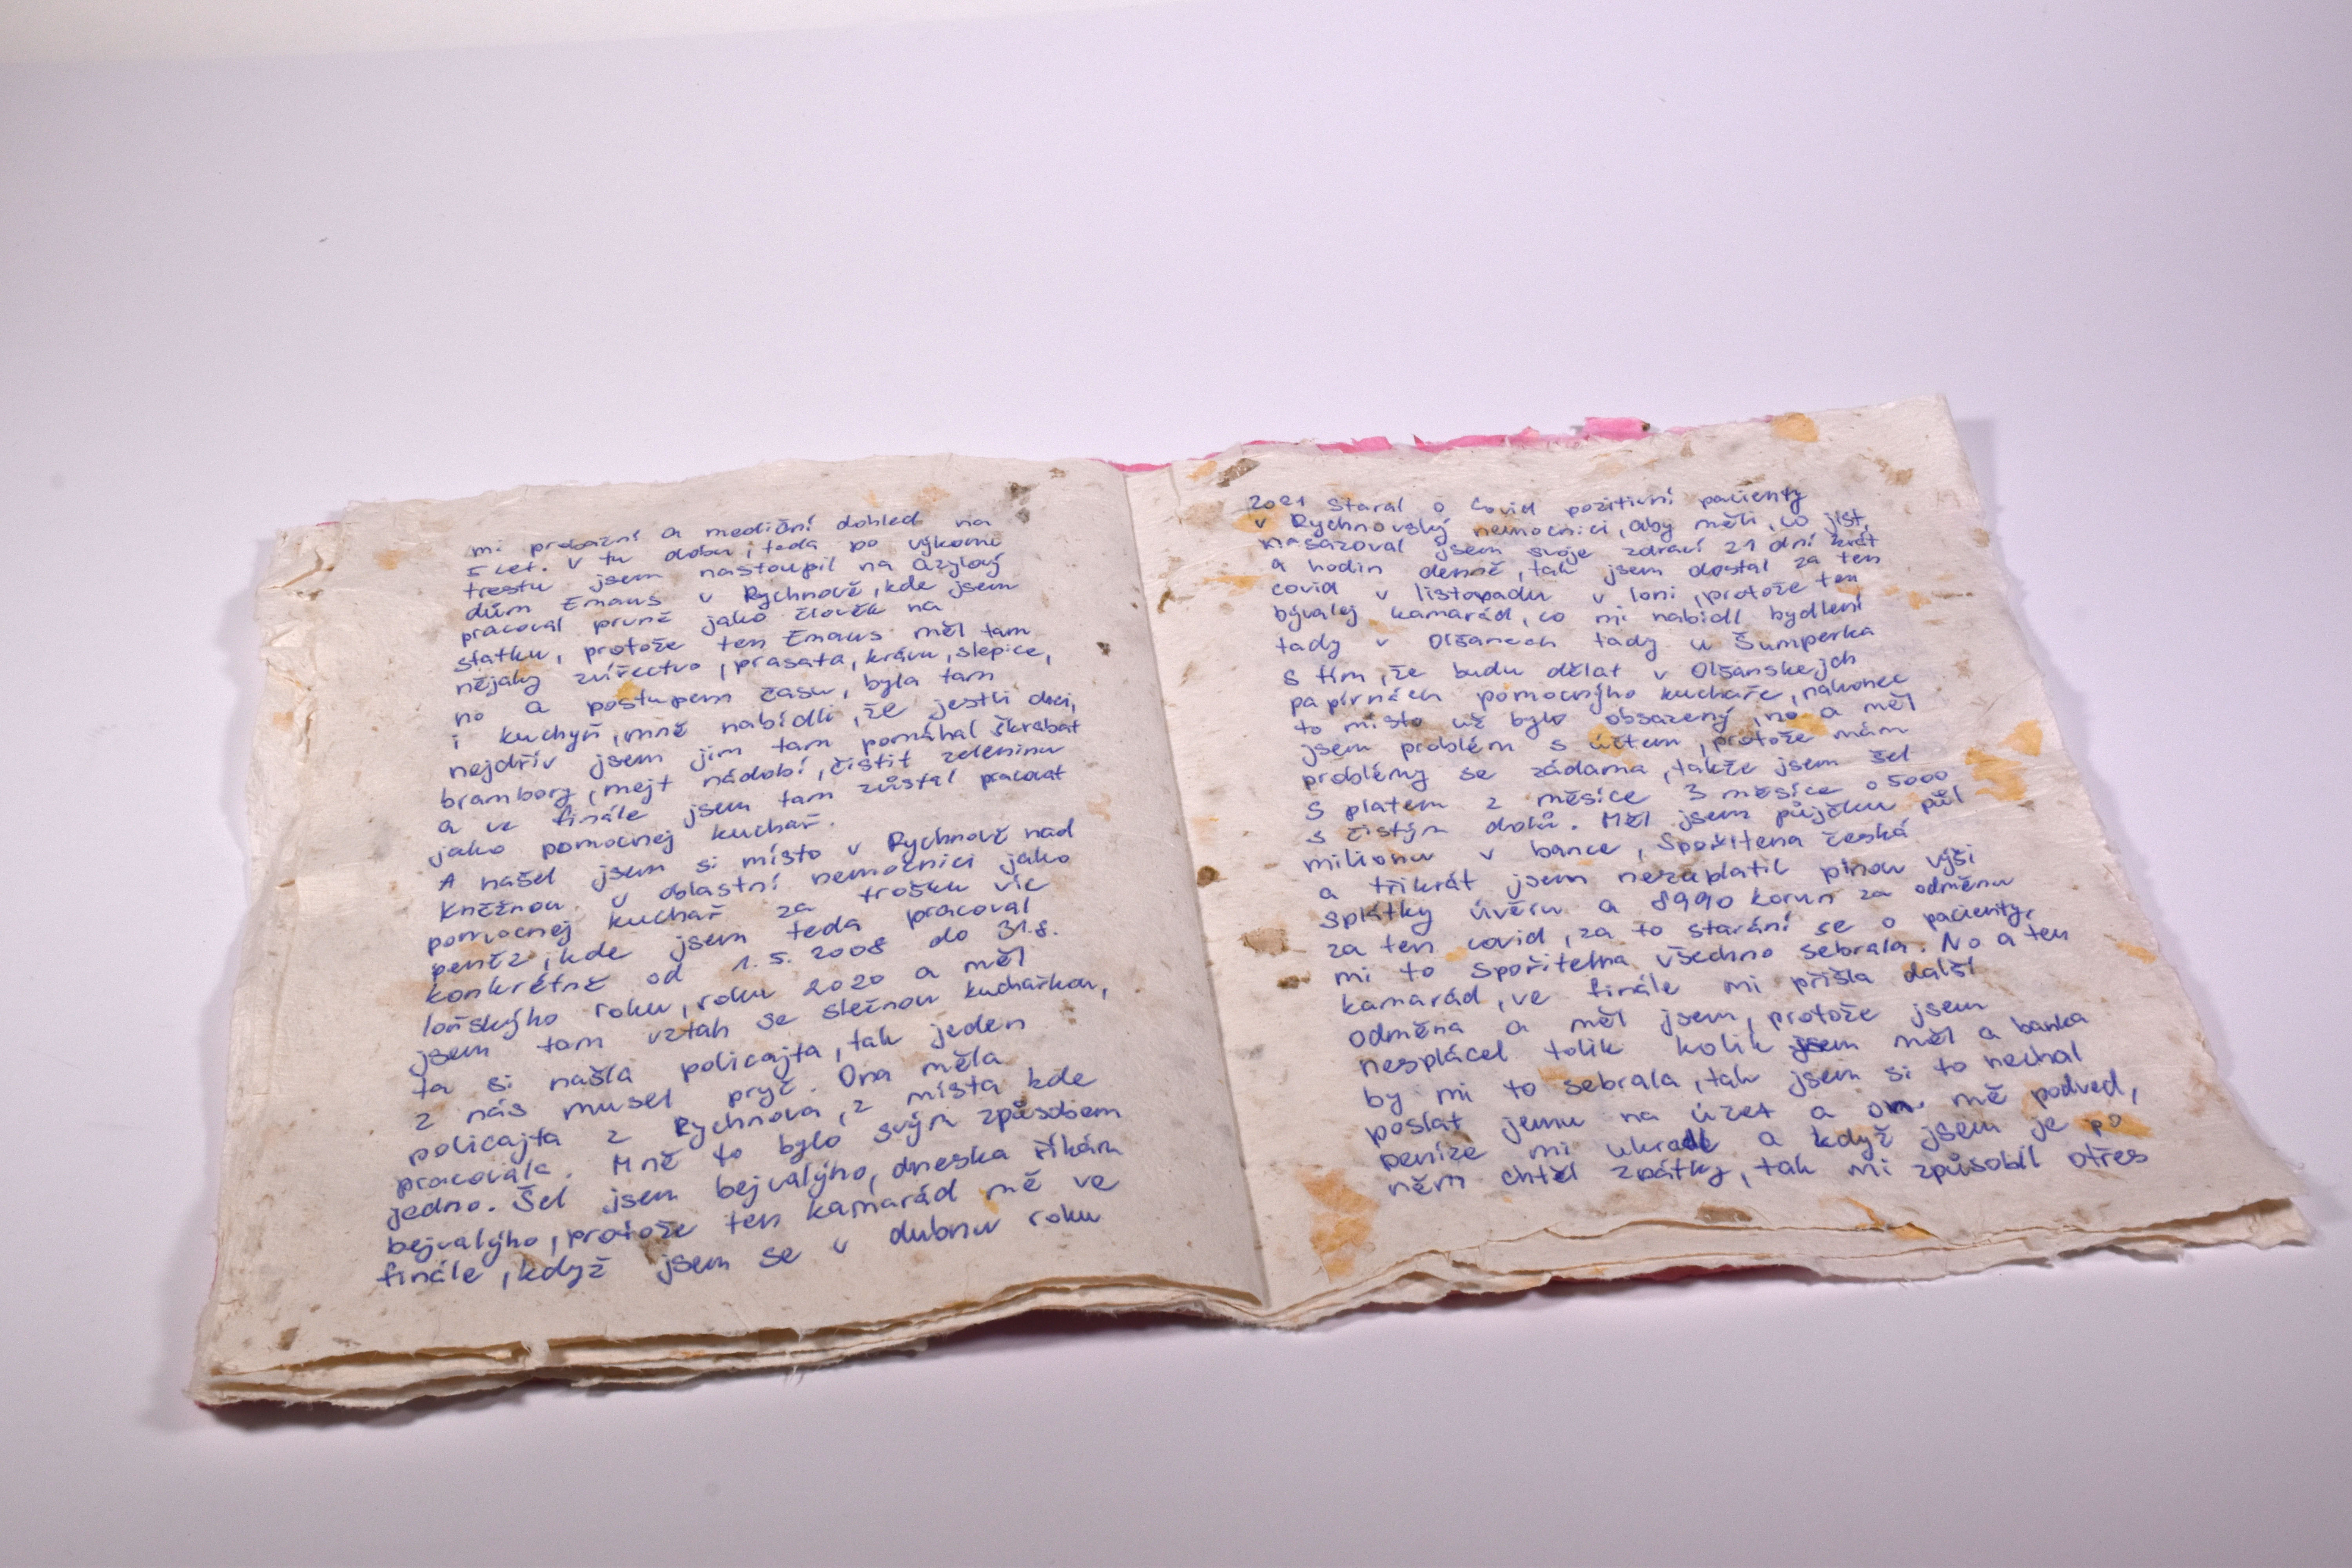 mi probační a mediční dohled na
5 let. V tu dobu, teda po výkonu
trestu jsem nastoupil na Azylový
dům Emaus v Rychnově, kde jsem
pracoval prvně jako člověk na
statku, protože ten Emaus měl tam
nějaký zvířectvo, prasata, krávu, slepice,
no a postupem času, byla tam
i kuchyň, mně nabídli, že jestli chci,
nejdřív jsem jim tam pomáhal škrabat
brambory, mejt nádobí, čistit zeleninu
a ve finále jsem tam zůstal pracovat
jako pomocnej kuchař.
A našel jsem si místo v Rychnově nad
Kněžnou v oblastní nemocnici jako
pomocnej kuchař za trošku víc
peněz, kde jsem teda pracoval
konkrétně od 1. 5. 2008 do 31.8.
loňskýho roku, roku 2020 a měl
jsem tam vztah se slečnou kuchařkou,
ta si našla policajta, tak jeden
z nás musel pryč. Ona měla
policajta z Rychnova, z místa kde
pracovala. Mně to bylo svým způsobem
jedno. Šel jsem bejvalýho, dneska říkám
bejvalýho, protože ten kamarád mě ve
finále, když jsem se v dubnu roku
2021 staral o covid pozitivní pacienty
v Rychnovský nemocnici, aby měli, co jíst,
nasazoval jsem svoje zdraví 21 dní krát
a hodin denně, tak jsem dostal za ten
covid v listopadu v loni, protože ten
bývalej kamarád, co mi nabídl bydlení
tady v Olšanech tady u Šumperka
s tím, že budu dělat v Olšanskejch
papírnách pomocnýho kuchaře, nakonec
to místo už bylo obsazený, no a měl
jsem problém s účtem, protože mám
problémy se zádama, takže jsem šel
s platem z měsíce 3 měsíce o 5000
s čistým dolů. Měl jsem půjčku půl
milionu v bance, Spořitena česká
a třikrát jsem nezaplatil plnou výši
splátky úvěru a 8990 korun za odměnu
za ten covid, za to starání se o pacienty,
mi to Spořitelna všechno sebrala. No a ten
kamarád, ve finále mi přišla další
odměna a měl jsem, protože jsem
nesplácel tolik kolik jsem měl a banka
by mi to sebrala, tak jsem si to nechal
poslat jemu na účet a on mě podved,
peníze mi ukradl a když jsem je po
něm chtěl zpátky, tak mi způsobil otřes